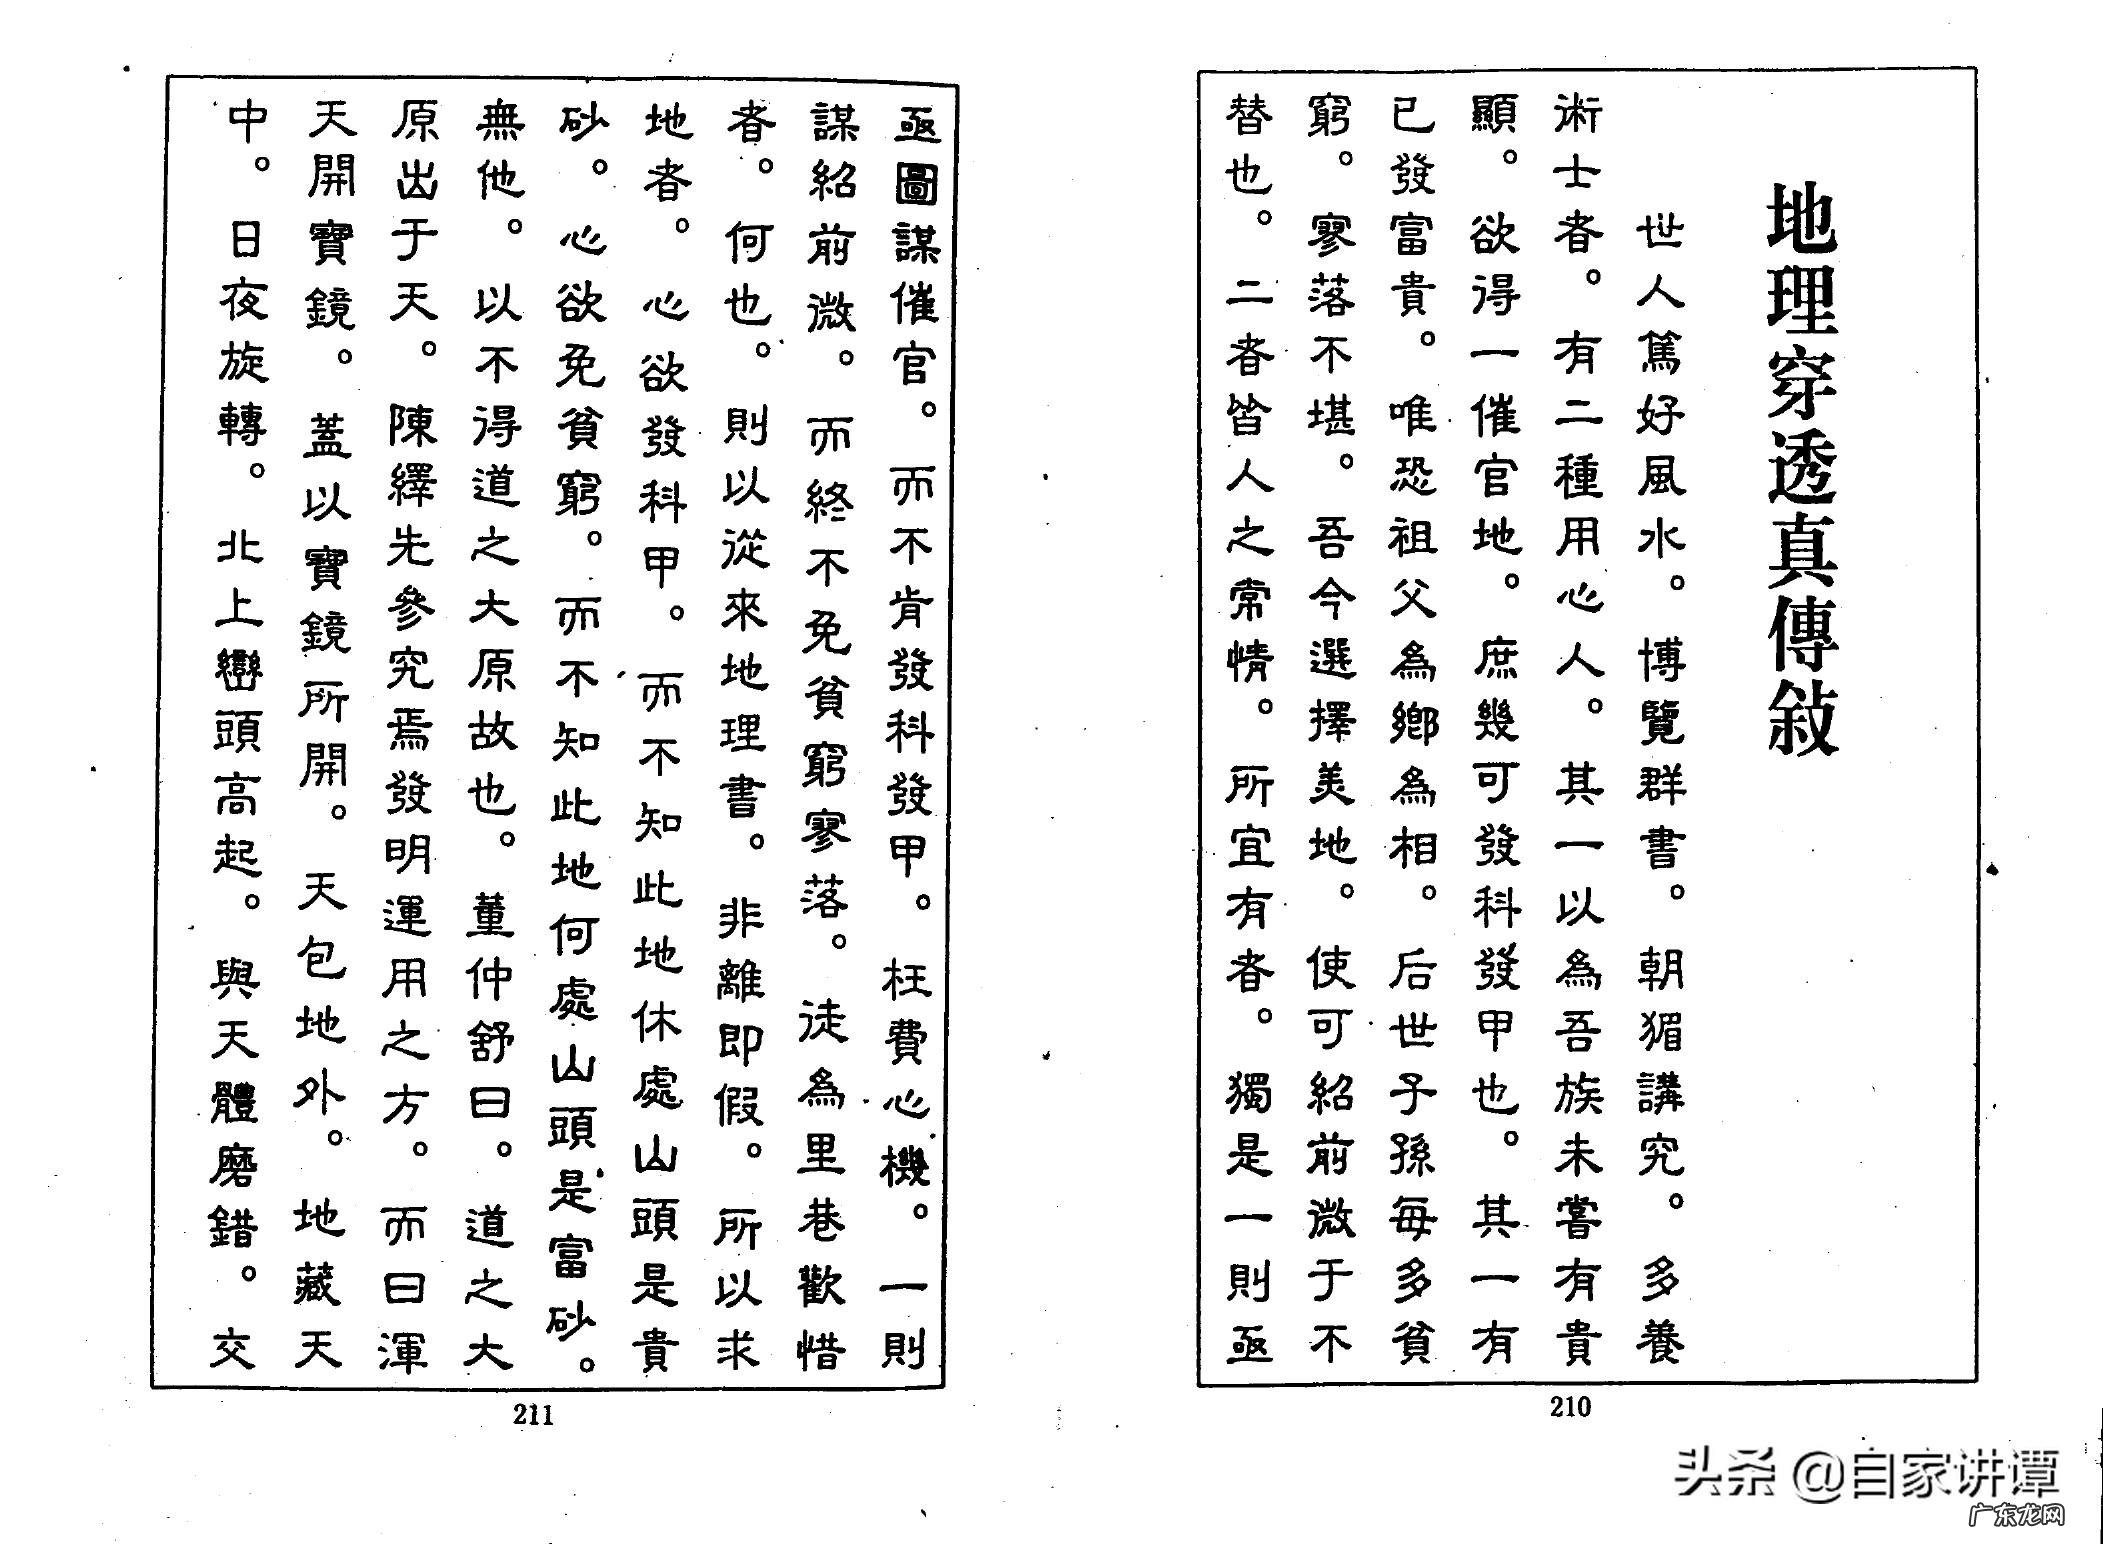 地理穿透真傳敍
世人篤好風水。博覽群書。朝猸講究。多養
術士者。有二種用心人。其一以為吾族未嘗有貴
顯。欲得一催官地。庶幾可發科發甲也。其一有
已發富貴。唯恐祖父為鄉為相。后世子孫每多貧
窮。寥落不堪。吾今選擇美地。使可紹前微于不
替也。二者皆人之常情。所宜有者。獨是一則亟
210
亟圖謀催官。而不肯發科發甲。枉費心機。一則
謀紹前微。而終不免貧窮寥落。徒為里巷歡惜
者。何也。則以從來地理書。非離即假。所以求
地者。心欲發科甲。而不知此地休處山頭是貴
砂。心欲免貧窮。而不知此地何處山頭是富砂。
無他。以不得道之大原故也。董仲舒曰。道之大
原出于天。陳繹先參究焉發明運用之方。而曰渾
天開寶鏡。蓋以寶鏡所開。天包地外。地藏天
中。日夜旋轉。北上巒頭高起。與天體磨錯。交
211
头杀 @自家讲谭
广东龙网